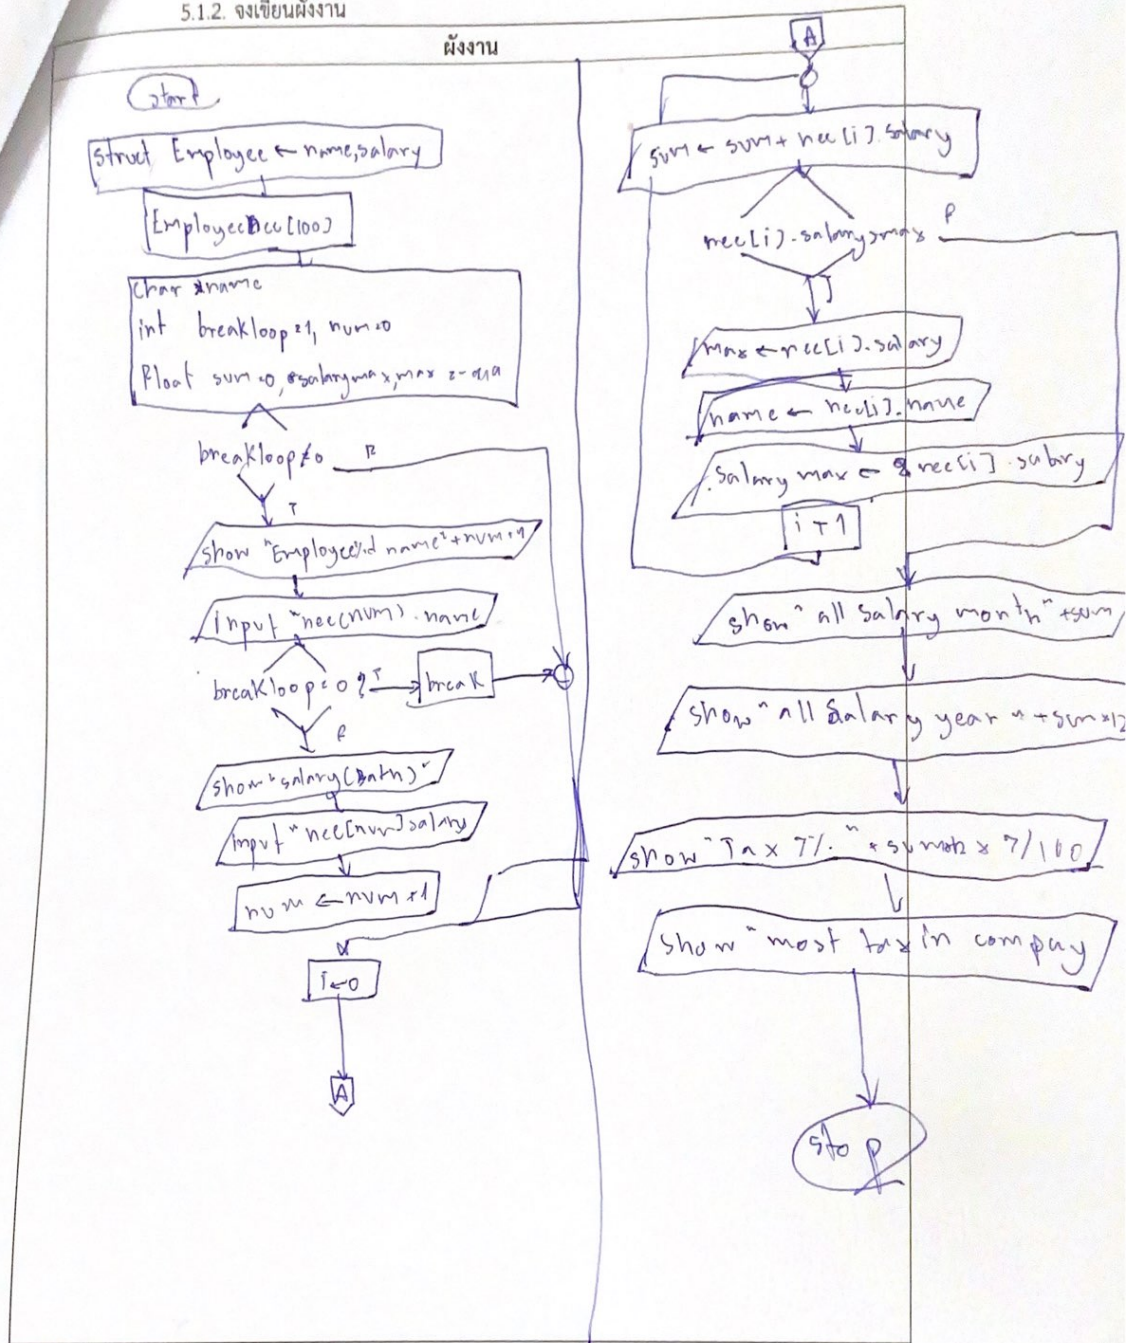 5.1.2. จงเขียนผังงาน
ผังงาน
Start
struct Employee ← name,salary
[100]
char *name
int breakloop=1, num=0
float sum=0, *salarymax, max =
breakloop≠0
T
show "Employee%d name"+num+1
input "nec(num).name
breakloop=0 ? T
break
F
show "salary(Bath)"
input "nec[num]salary
num ← num+1
i←0
A
A
sum ← sum + nec[i].salary
nec[i].salary>max F
max ← nec[i].salary
name ← nec[i].name
salary max ← & nec[i].salary
i + 1
show "all salary month" +sum
show "all salary year" +sum*12
show "Tax 7%." x 7/100
show "most tax in compay
stop